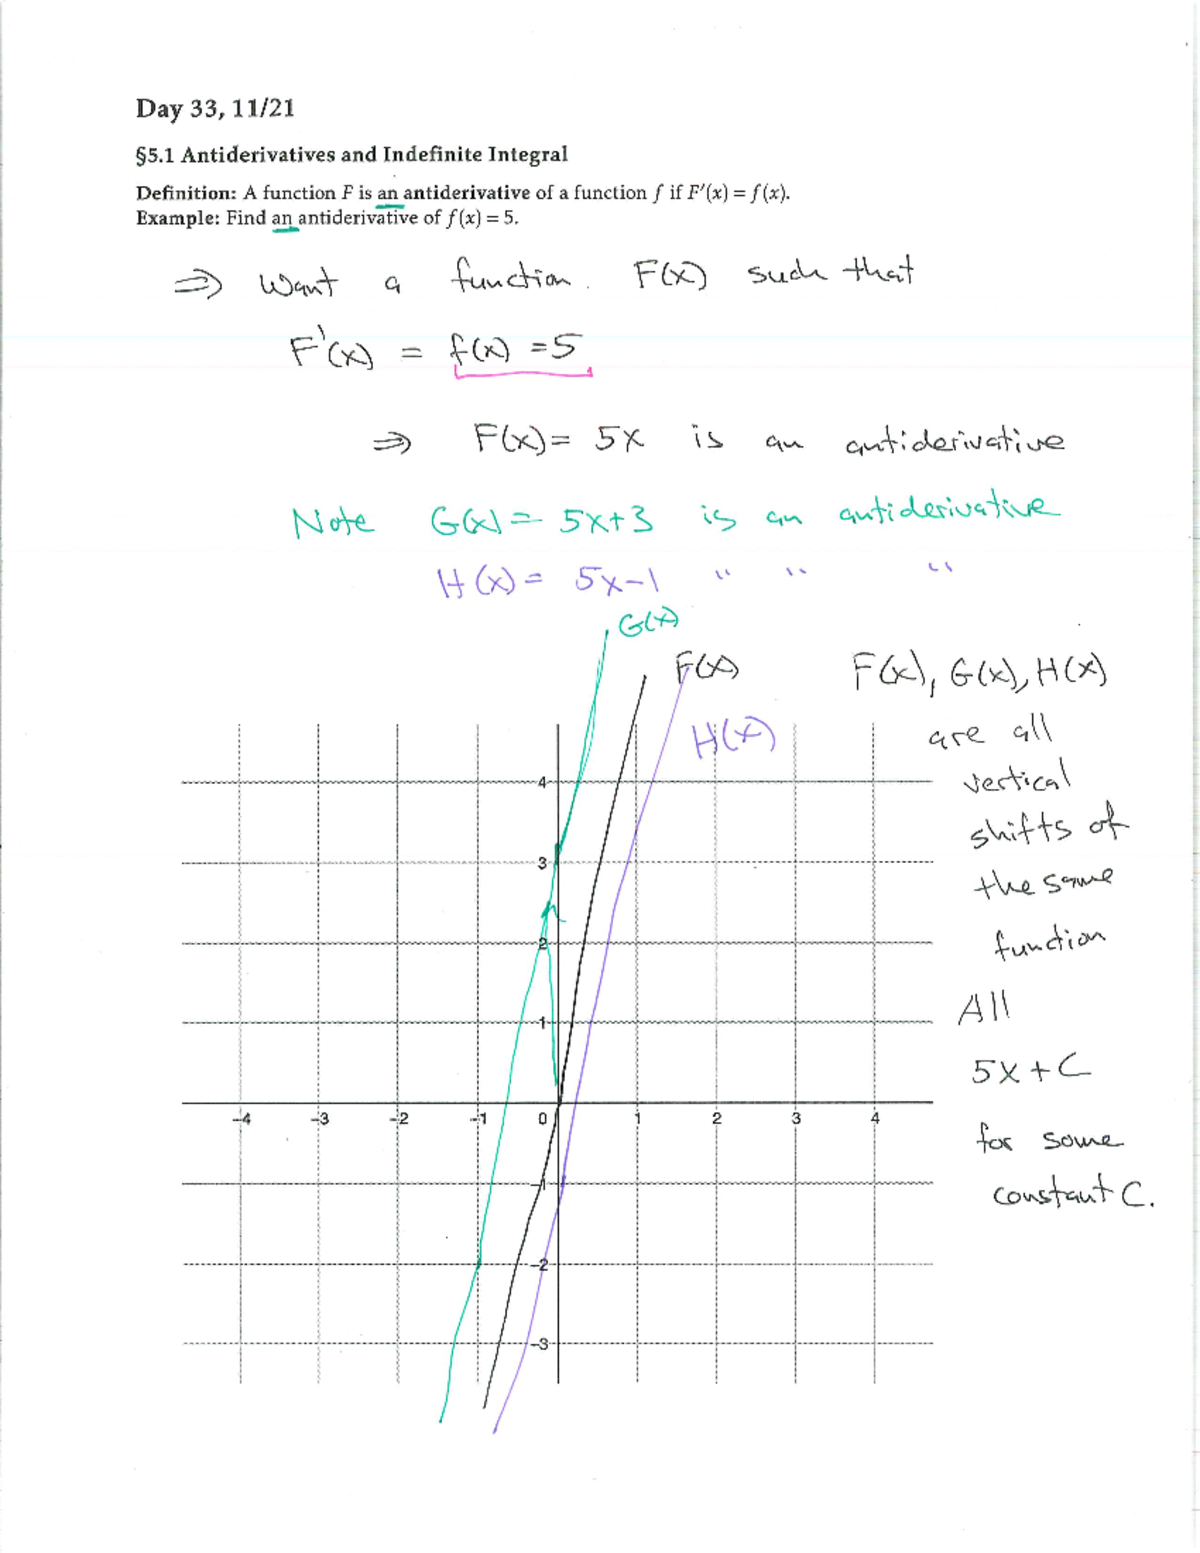 Day 33, 11/21
§5.1 Antiderivatives and Indefinite Integral
Definition: A function F is an antiderivative of a function f if F′(x) = f(x).
Example: Find an antiderivative of f(x) = 5.
⇒ Want a function F(x) such that
F'(x) = f(x) = 5
⇒ F(x) = 5x is an antiderivative
Note G(x) = 5x+3 is an antiderivative
H(x) = 5x-1 " " "
G(x)
F(x)
H(x)
F(x), G(x), H(x)
are all
vertical
shifts of
the same
function
All
5x + C
for some
constant C.
4
3
2
1
-4 -3 -2 -1 0 1 2 3 4
-1
-2
-3